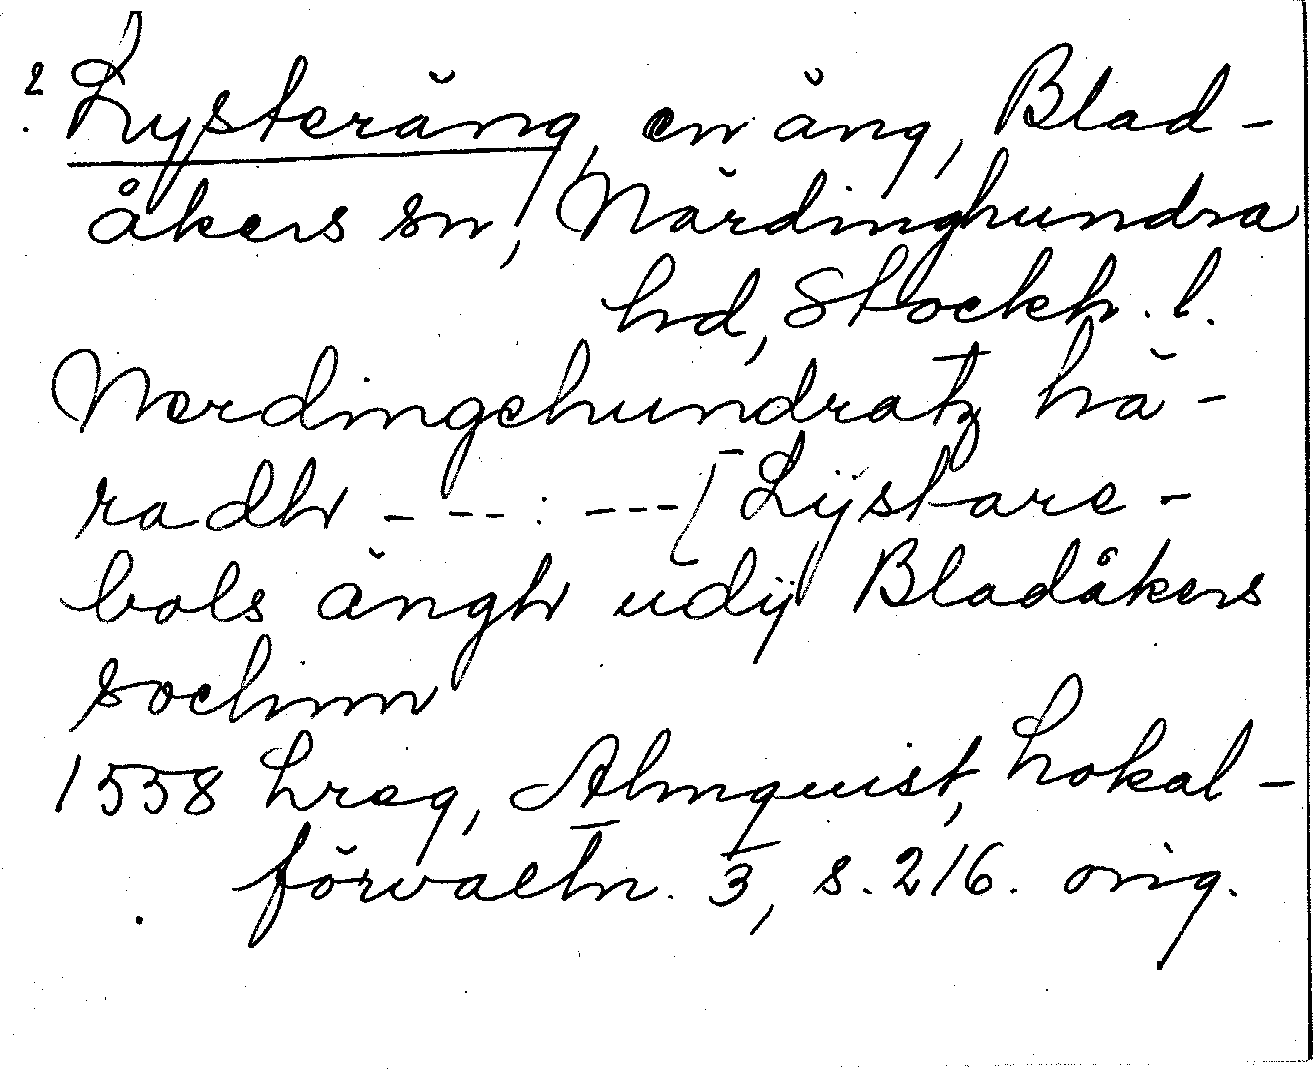 ? Lysteräng, en äng, Blad-
åkers sn, Närdinghundra
hd, Stockh. l.
Nerdingehundratz hä-
radh - -- : --- [ Lÿstare-
bols ängh udÿ Bladåkers
sochnn
1558 hreg, Almquist, Lokal-
förvaltn. 3, s. 216. orig.